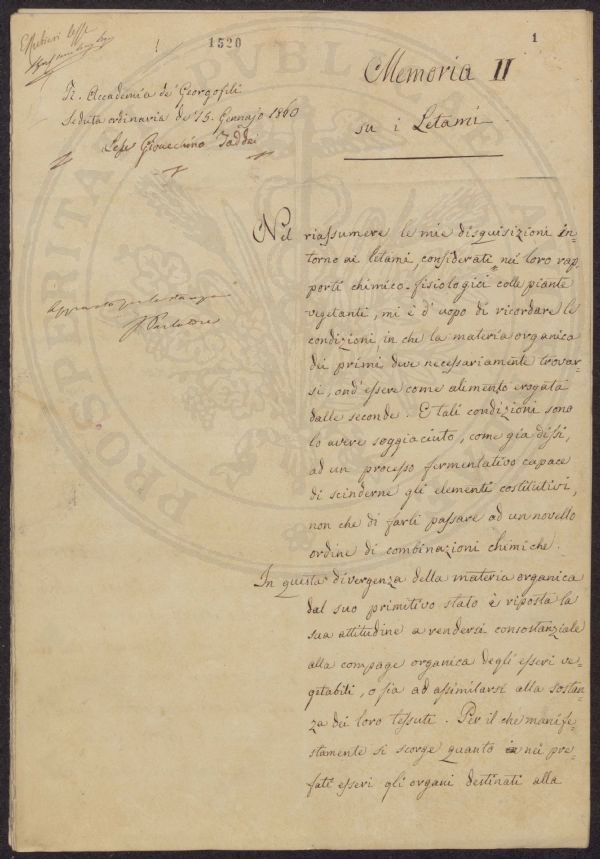 1520
1
R. Accademia de' Georgofili
Seduta ordinaria de' 15. Gennajo 1860
Lesse Gioacchino Taddei
Memoria II
su i Letami
Nel riassumere le mie disquisizioni in=
torno ai letami, considerati nei loro rap=
porti chimico-fisiologici colle piante
vegetanti, mi è d'uopo di ricordare le
condizioni, in che la materia organica
dei primi deve necessariamente trovar=
si, ond'essere come alimento erogata
dalle seconde. E tali condizioni sono
lo avere soggiaciuto, come già dissi,
ad un processo fermentativo capace
di scinderne gli elementi costitutivi,
non che di farli passare ad un novello
ordine di combinazioni chimiche.
In questa divergenza della materia organica
dal suo primitivo stato è riposta la
sua attitudine a rendersi consostanziale
alla compage organica degli esseri ve=
getabili, o sia ad assimilarsi alla sostan=
za dei loro tessuti. Per il che manife=
stamente si scorge quanto nei pre=
fati esseri gli organi destinati alla
PROSPERITAS PUBLICA